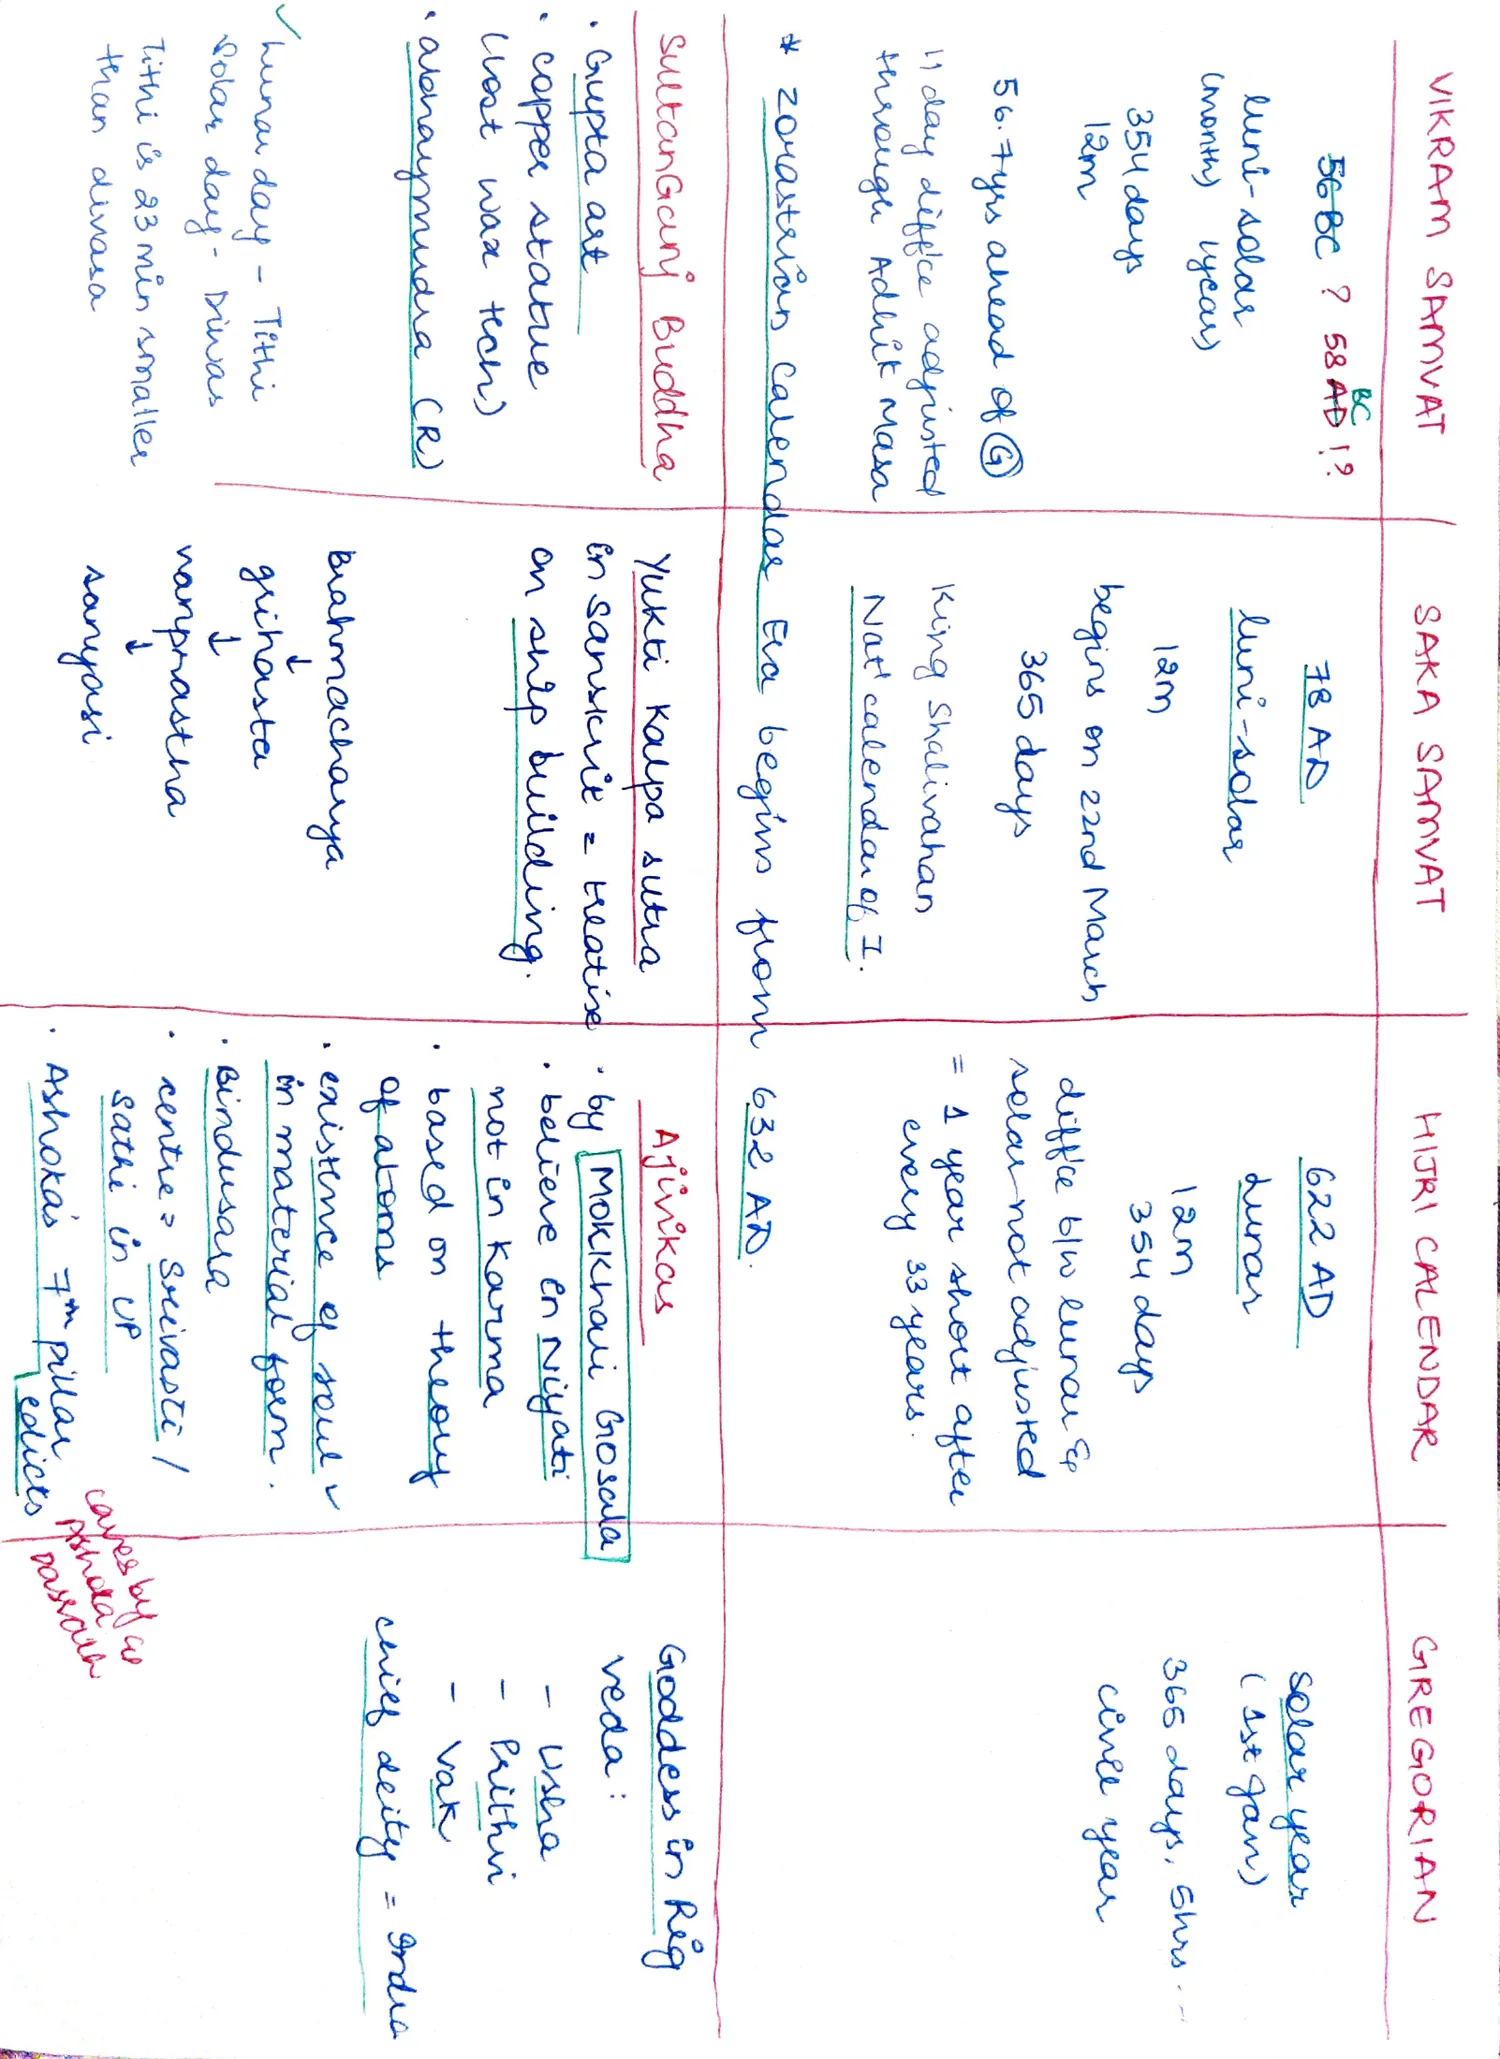 VIKRAM SAMVAT
56BC ? 58 AD !?
BC
luni-solar
(month) (year)
354 days
12m
56.7yrs ahead of G
11 day diff'ce adjusted
through Adhik Masa
SAKA SAMVAT
78 AD
luni-solar
12m
begins on 22nd March
365 days
King Shalivahan
Nat' calendar of I.
HIJRI CALENDAR
622 AD
Lunar
12M
354 days
diff'ce b/w lunar &
solar not adjusted
= 1 year short after
every 33 years.
GREGORIAN
Solar year
(1st Jan)
365 days, 5hrs...
civil year
* Zorastrian Calendar Era begins from 632 AD.
SultanGanj Buddha
• Gupta art
• copper statue
(lost wax tech)
• abhaymudra (R)
✓ Lunar day - Tithi
Solar day - Diwas
Tithi is 23 min smaller
than divasa
Yukti Kalpa sutra
in sanskrit = treatise
on ship building.
Brahmacharya
↓
grihasta
↓
vanprastha
↓
sanyasi
Ajivikas
• by Mokkhali Gosala
• believe in Niyati
not in Karma
• based on theory
of atoms
• existence of soul ✓
in material form.
• Bindusara
• centre = Srivasti /
Sathi in UP
• Ashoka's 7th pillar
edicts
caves by
Ashoka
Dasrath
Goddess in Rig
veda :
- Usha
- Prithvi
- Vak
chief deity = Indra